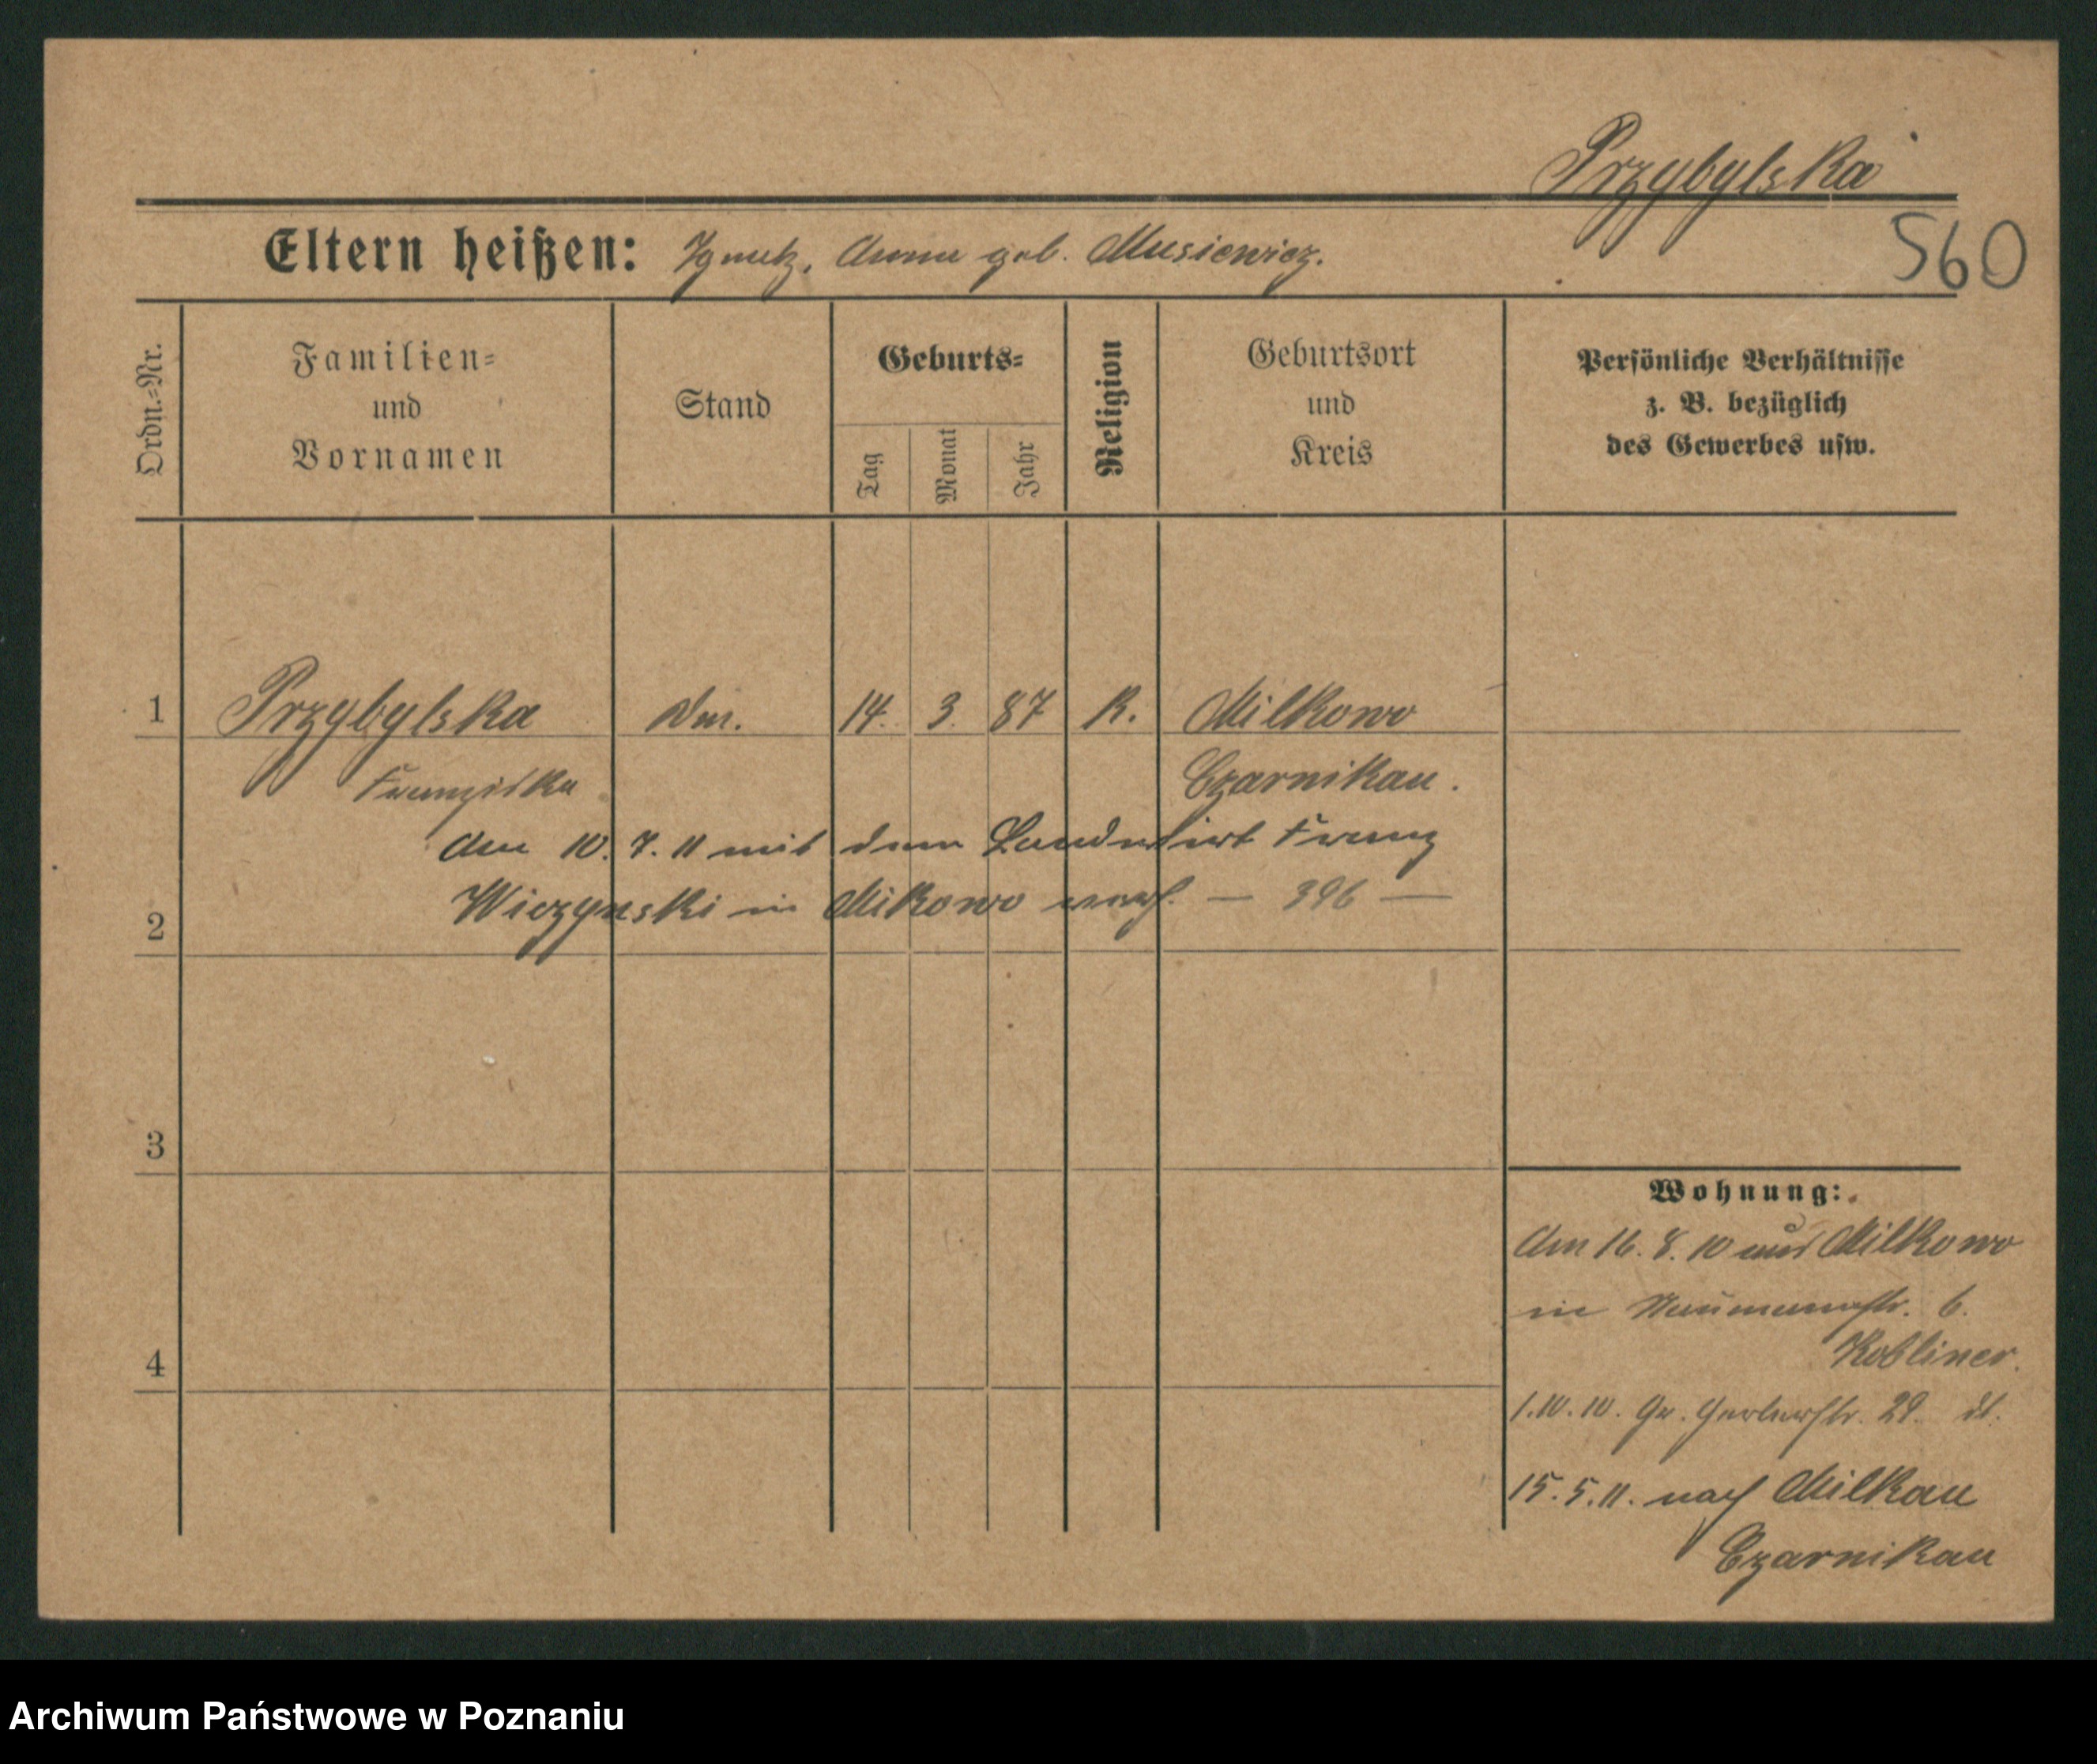 Przybylska
560
Eltern heißen: Ignatz, Anna geb. Musiewicz.
Ordn.=Nr.
Familien=
und
Vornamen
Stand
Geburts=
Tag
Monat
Jahr
Religion
Geburtsort
und
Kreis
Persönliche Verhältnisse
z. B. bezüglich
des Gewerbes usw.
1 Przybylska 14. 3. 87 K. Milkowo
Franziska Czarnikau.
Am 10. 7. 11 mit dem Landwirt Franz
2 Wiczynski in Milkowo verh. — 396 —
3
Wohnung:
Am 16. 8. 10 aus Milkowo
in Naumannstr. 6.
Kobliner.
4
1.10.10. Gr. Gerberstr. 29.
15.5.11. nach Milkau
Czarnikau
Archiwum Państwowe w Poznaniu